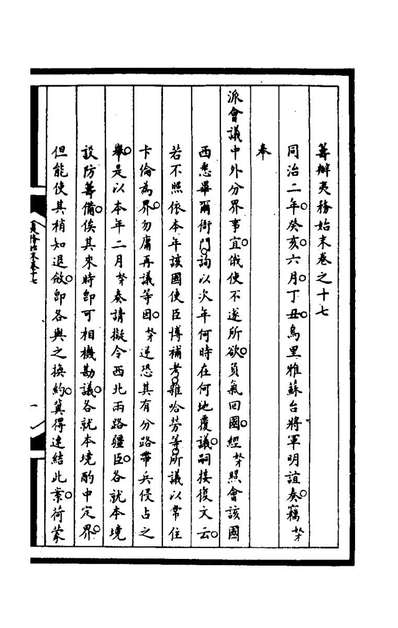 籌辦夷務始末卷之十七
同治二年癸亥六月丁丑烏里雅蘇台將軍明誼奏竊等
奉
派會議中外分界事宜俄使不遂所欲負氣回國經等照會該國
西悉畢爾衙門詢以次年何時在何地覆議嗣接復文云
若不照依本年該國使臣博補考雜哈勞等所議以常住
卡倫為界勿庸再議等因等逆恐其有分路帶兵侵占之
舉是以本年二月等奏請擬令西北兩路疆臣各就本境
設防籌備俟其來時即可相機勘議各就本境酌中定界
但能使其稍知退斂即各與之換約冀得速結此案荷蒙
夷務始末卷十七
一